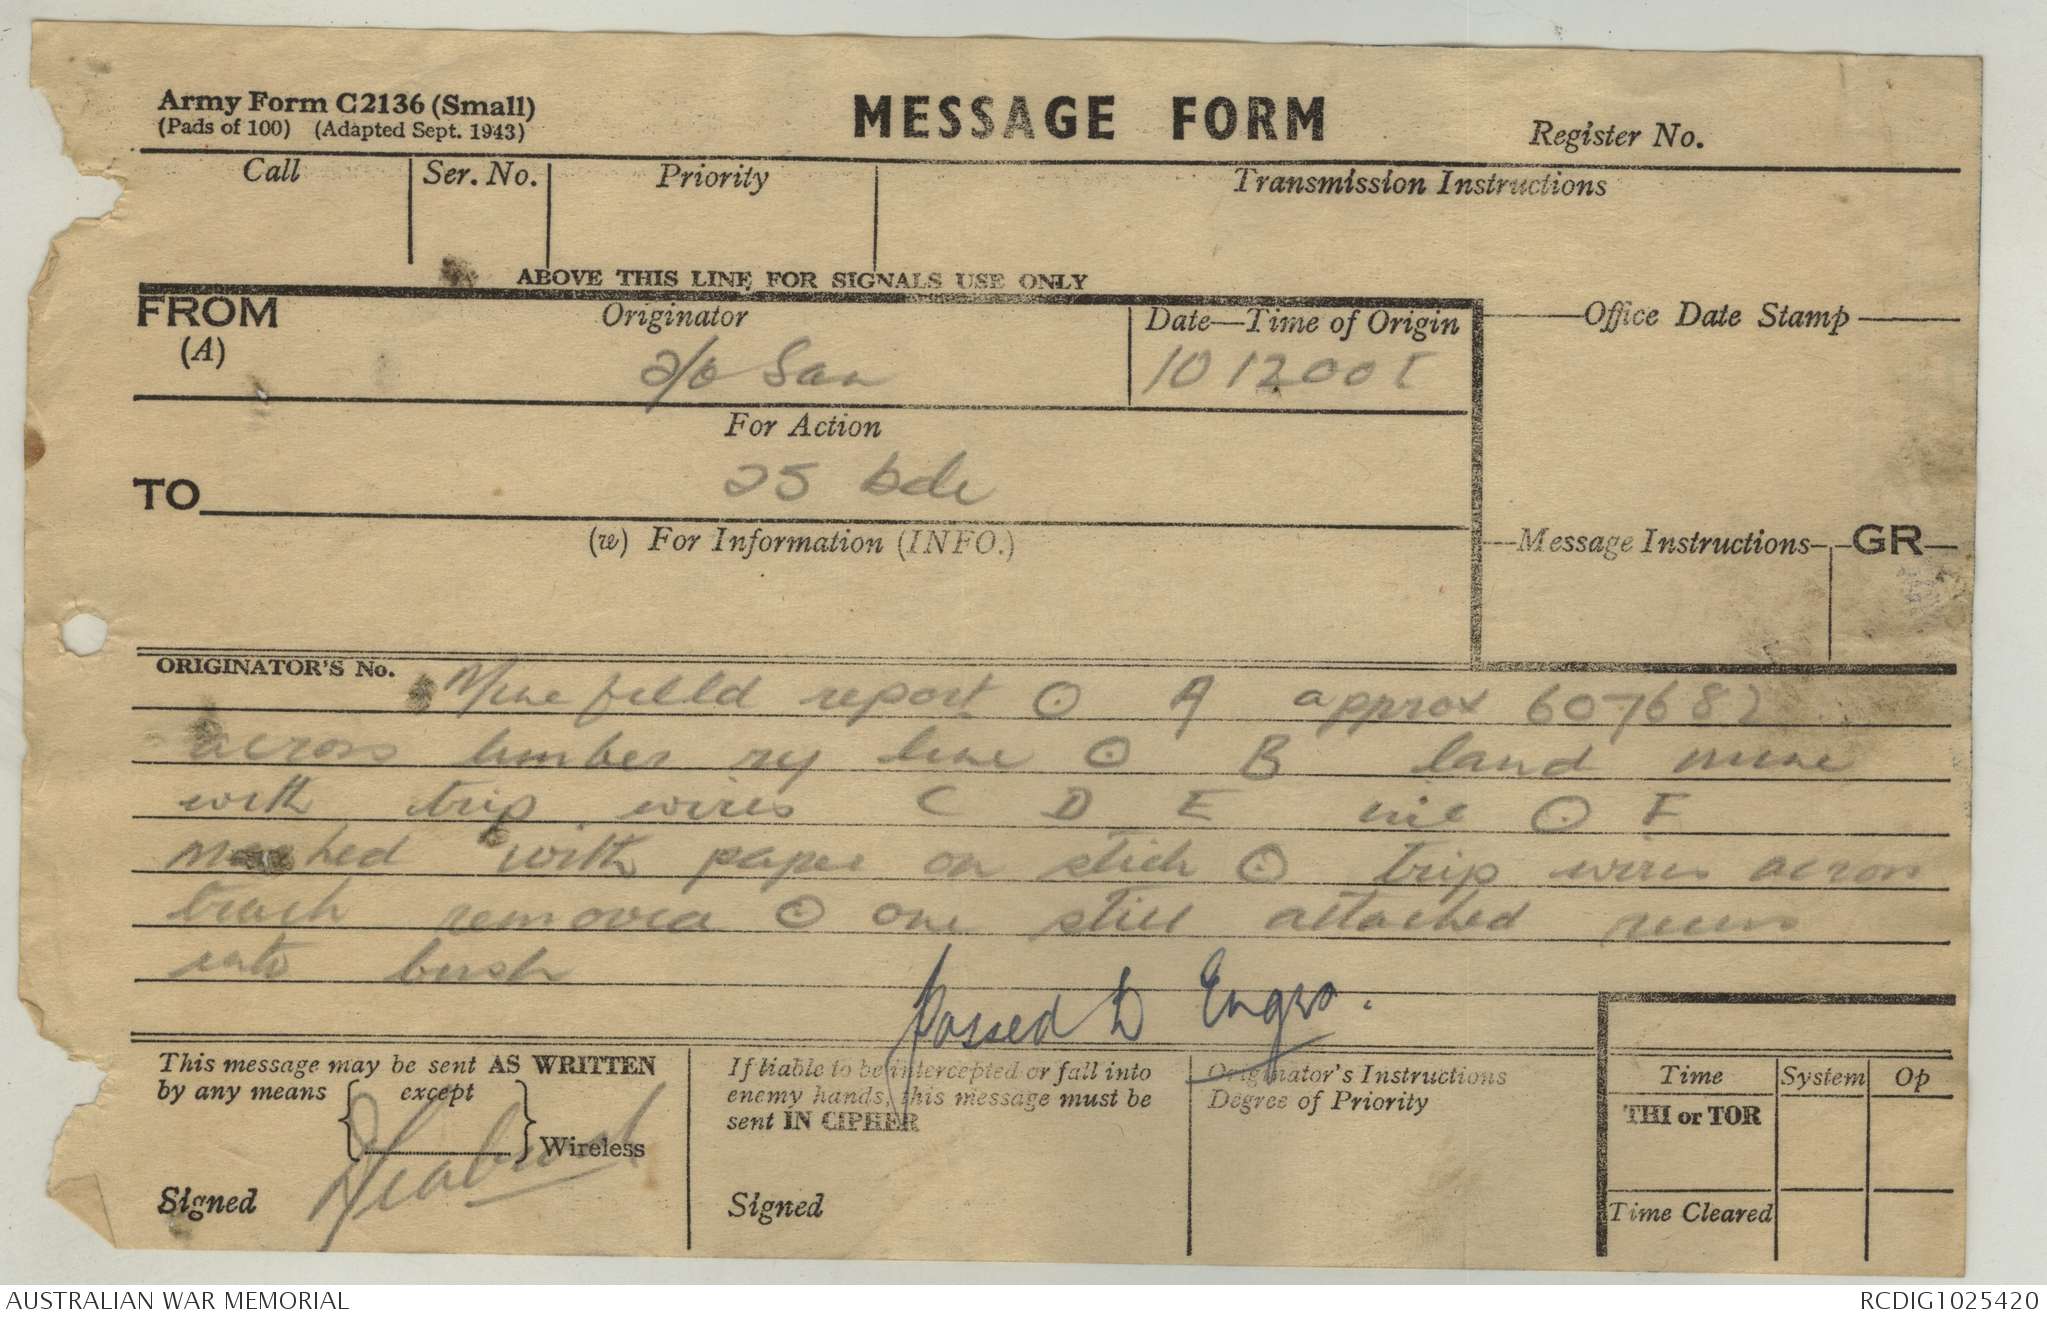 Army Form C2136 (Small)
(Pads of 100) (Adapted Sept. 1943)
MESSAGE FORM
Register No.
Call
Ser. No.
Priority
Transmission Instructions
ABOVE THIS LINE FOR SIGNALS USE ONLY
FROM
(A)
Originator
Date—Time of Origin
Office Date Stamp
101200
For Action
TO
25 bde
(w) For Information (INFO.)
Message Instructions
GR
ORIGINATOR'S No.
Mine field report ⊙ A approx 607682
across timber ry line ⊙ B land mine
with trip wires C D E nil ⊙ F
marked with paper on stick ⊙ trip wires across
track removed ⊙ one still attached runs
into bush
Passed to Engrs.
This message may be sent AS WRITTEN
by any means except
Wireless
Signed
If liable to be intercepted or fall into
enemy hands, this message must be
sent IN CIPHER
Signed
Originator's Instructions
Degree of Priority
Time
System
Op
THI or TOR
Time Cleared
AUSTRALIAN WAR MEMORIAL
RCDIG1025420